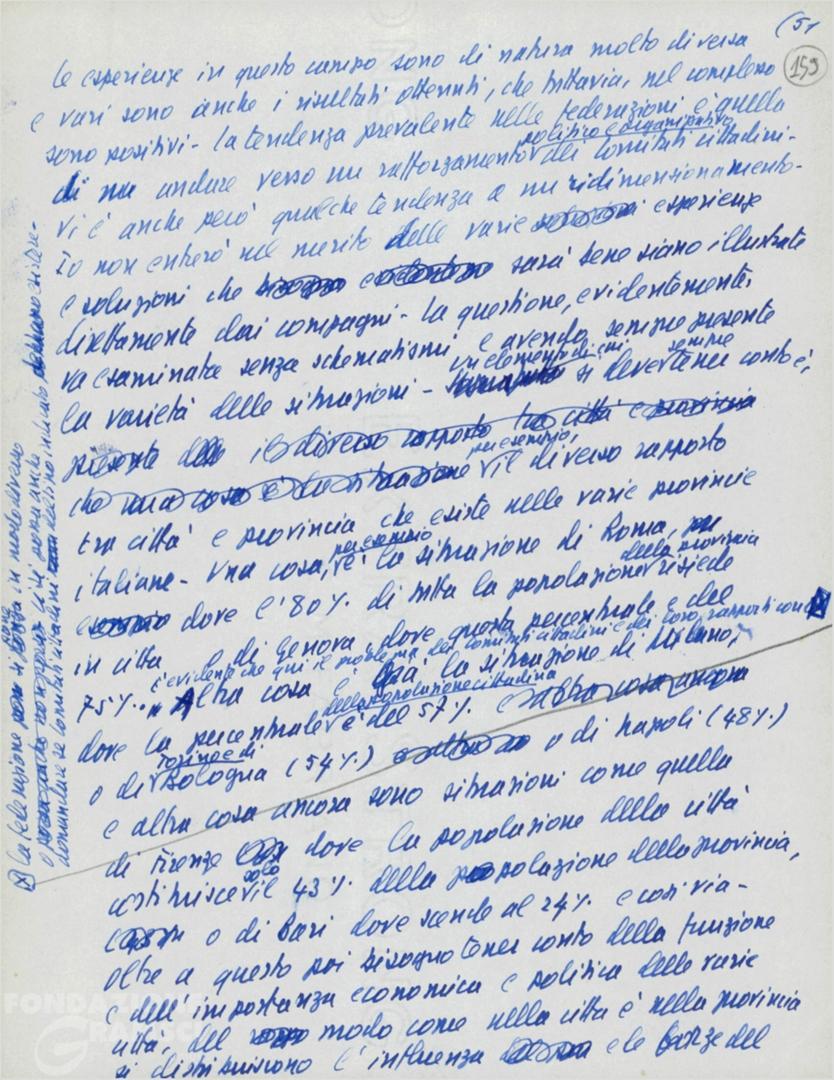 (51
159
Le esperienze in questo campo sono di natura molto diversa
e vari sono anche i risultati ottenuti, che tuttavia, nel complesso
sono positivi - La tendenza prevalente nelle Federazioni è quella
politico e organizzativo
di andare verso un rafforzamento dei Comitati cittadini -
Vi è anche però qualche tendenza a un ridimensionamento -
Io non entrerò nel merito delle varie esperienze
e soluzioni che sarà bene siano illustrate
direttamente dai compagni - La questione, evidentemente,
va esaminata senza schematismi e avendo sempre presente
un elemento di cui sempre
la varietà delle situazioni - si deve tener conto è,
presente il diverso rapporto tra città e provincia
che una cosa è la situazione
per esempio,
il diverso rapporto
tra città e provincia che esiste nelle varie provincie
per esempio
italiane - Una cosa, è la situazione di Roma,
della provincia
dove l'80% di tutta la popolazione risiede
in città o di Genova dove questa percentuale è del
è evidente che qui il problema dei Comitati cittadini e dei loro rapporti con
75%. Altra cosa è già la situazione di Milano,
della popolazione cittadina
dove la percentuale è del 57% e altra cosa ancora
Torino e di
o di Bologna (54%) o di Napoli (48%)
e altra cosa ancora sono situazioni come quella
di Firenze dove la popolazione della città
solo
costituisce il 43% della popolazione della provincia,
o di Bari dove scende al 24% e così via -
Oltre a questo poi bisogna tener conto della funzione
e dell'importanza economica e politica delle varie
città, del modo come nella città e nella provincia
si distribuiscono l'influenza e le forze del
la Federazione si pone in modo diverso
ci si possa anche
domandare se Comitati cittadini
FONDAZIONE
GRAMSCI